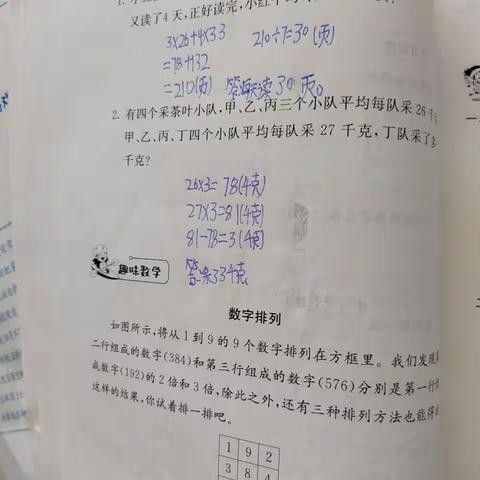 又读了4天，正好读完，小红平均
3×26+4×33 210÷7=30(页)
=78+132
=210(页) 答:每天读30页。
2. 有四个采茶叶小队，甲、乙、丙三个小队平均每队采 26 千
甲、乙、丙、丁四个小队平均每队采 27 千克，丁队采了多
千克?
26×3=78(千克)
27×3=81(千克)
81-78=3(千克)
趣味数学
数字排列
如图所示，将从 1 到 9 的 9 个数字排列在方框里。我们发现
二行组成的数字(384)和第三行组成的数字(576)分别是第一行组
成数字(192)的 2 倍和 3 倍，除此之外，还有三种排列方法也能得
这样的结果，你试着排一排吧。
1 9 2
3 8 4